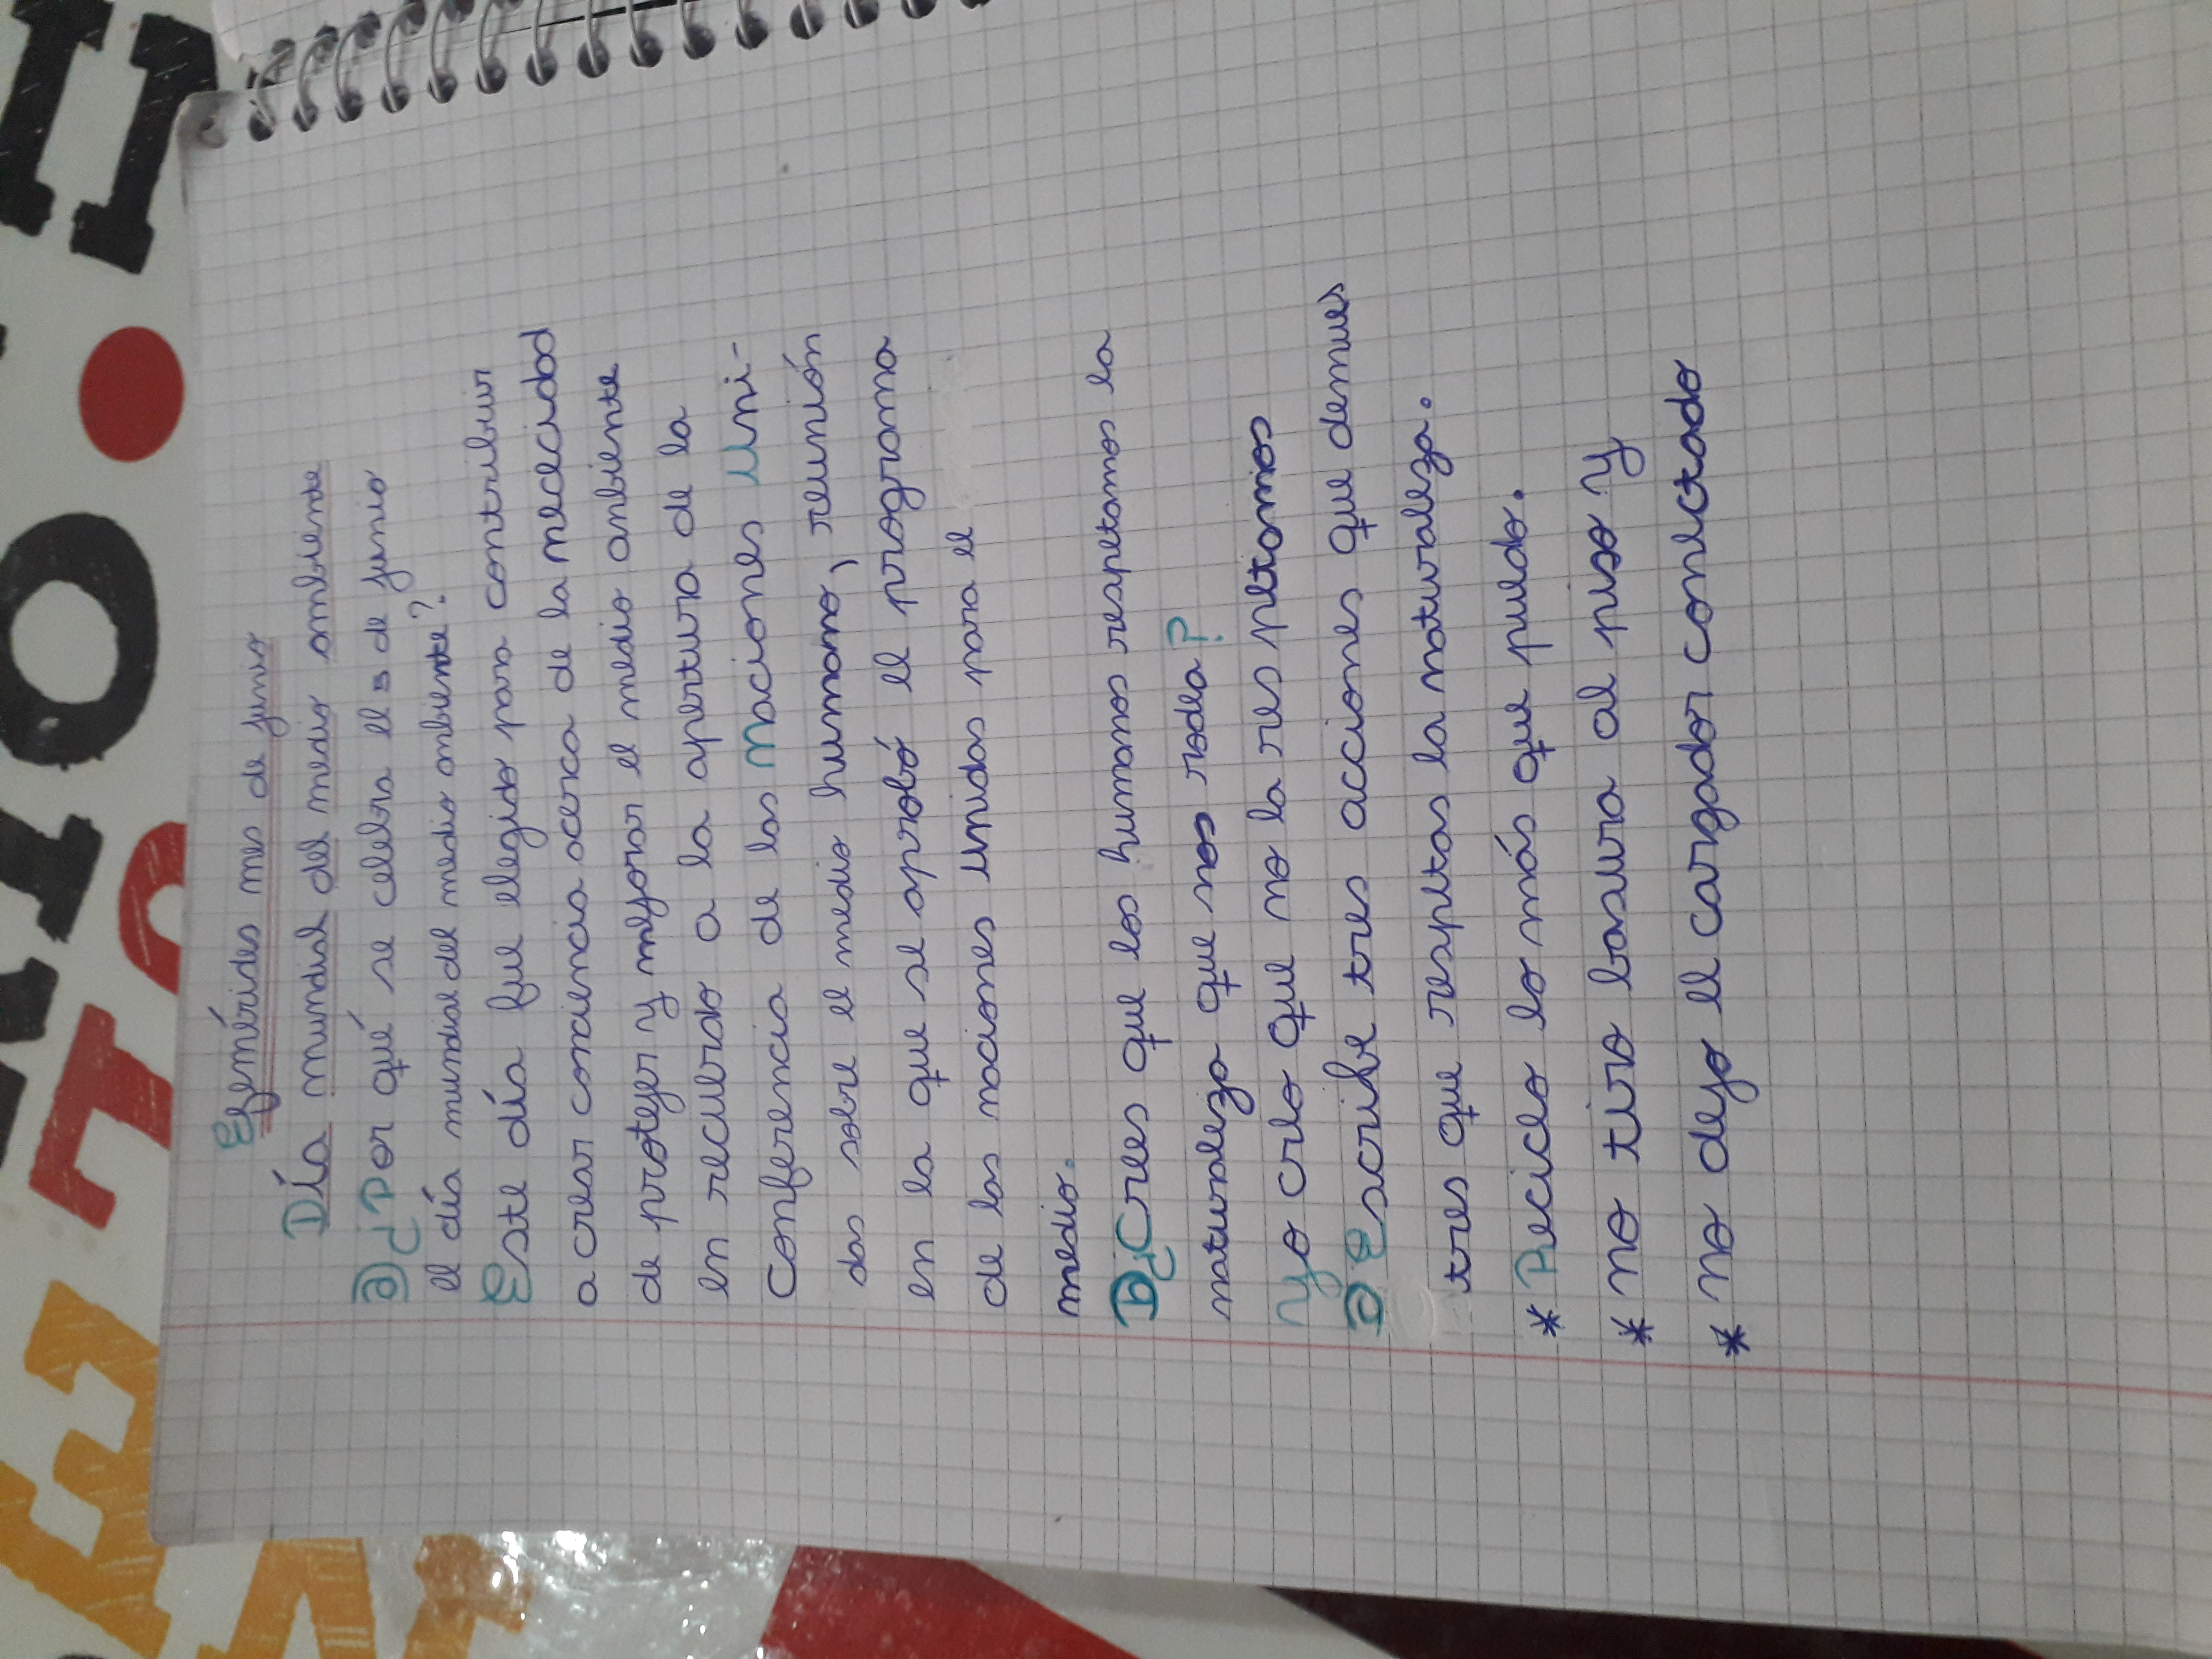 Efemérides mes de junio
Día mundial del medio ambiente
a) ¿Por qué se celebra el 5 de junio
el día mundial del medio ambiente?
Este día fue elegido para contribuir
a crear conciencia acerca de la nececidad
de proteger y mejorar el medio anbiente
en recuerdo a la apertura de la
Conferencia de las Naciones Uni-
das sobre el medio humano, reunión
en la que se aprobó el programa
de las naciones unidas para el
medio.
b) ¿Crees que los humanos respetamos la
naturaleza que nos rodea?
Yo creo que no la res petamos
Escribe tres acciones que demues
tres que respetas la naturaleza.
* Reciclo lo más que puedo.
* no tiro basura al piso y
* no dejo el cargador conectado